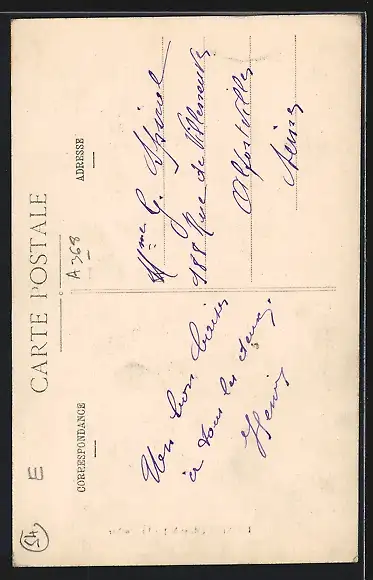 CARTE POSTALE
CORRESPONDANCE
ADRESSE
Un bon baiser
à tous les deux.
Henri
Mme G.
188 Rue de Villeneuve
Alfortville
Seine
A 368
E
54